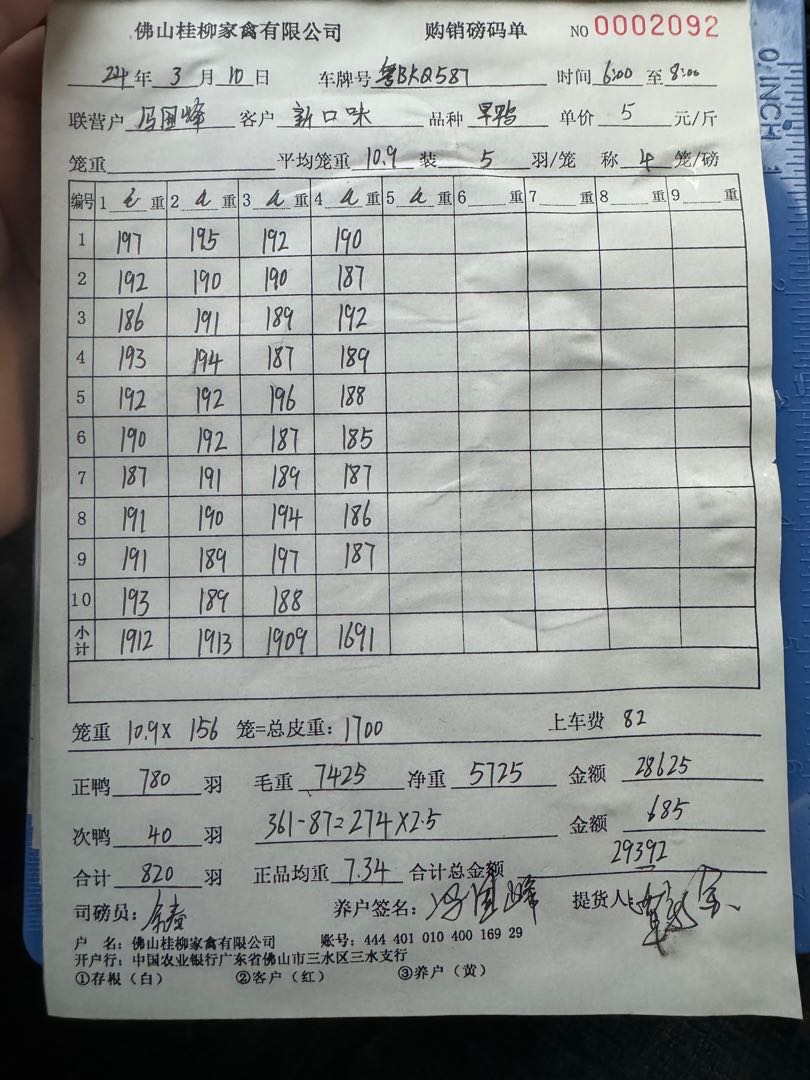 佛山桂柳家禽有限公司 购销磅码单 NO 0002092
24年 3月10日 车牌号 粤BKQ587 时间 6:00 至 8:00
联营户 冯国峰 客户 新口味 品种 旱鸭 单价 5 元/斤
笼重 平均笼重 10.9 装 5 羽/笼 称 4 笼/磅
编号 1 重 2 重 3 重 4 重 5 重 6 重 7 重 8 重 9 重
1 197 195 192 190
2 192 190 190 187
3 186 191 189 192
4 193 194 187 189
5 192 192 196 188
6 190 192 187 185
7 187 191 189 187
8 191 190 194 186
9 191 189 197 187
10 193 189 188
小计 1912 1913 1909 1691
笼重 10.9 X 156 笼=总皮重: 1700 上车费 82
正鸭 780 羽 毛重 7425 净重 5725 金额 28625
次鸭 40 羽 361-87=274X2.5 金额 685
合计 820 羽 正品均重 7.34 合计总金额 29392
司磅员: 养户签名: 冯国峰 提货人:
户 名: 佛山桂柳家禽有限公司 账号: 444 401 010 400 169 29
开户行: 中国农业银行广东省佛山市三水区三水支行
①存根(白) ②客户(红) ③养户(黄)
0 INCH 1